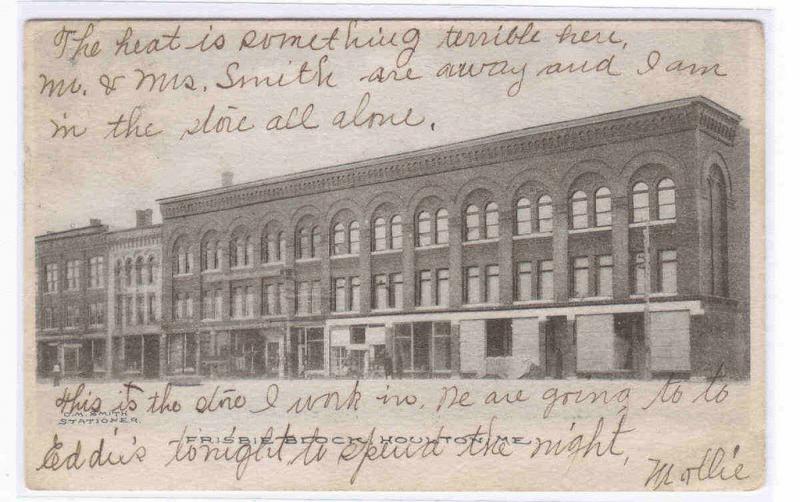 The heat is something terrible here,
Mr. & Mrs. Smith are away and I am
in the store all alone.
This is the store I work in. We are going to to
O.M. SMITH
STATIONER.
FRISBIE BLOCK, HOULTON, ME.
Eddie's tonight to spend the night,
Mollie